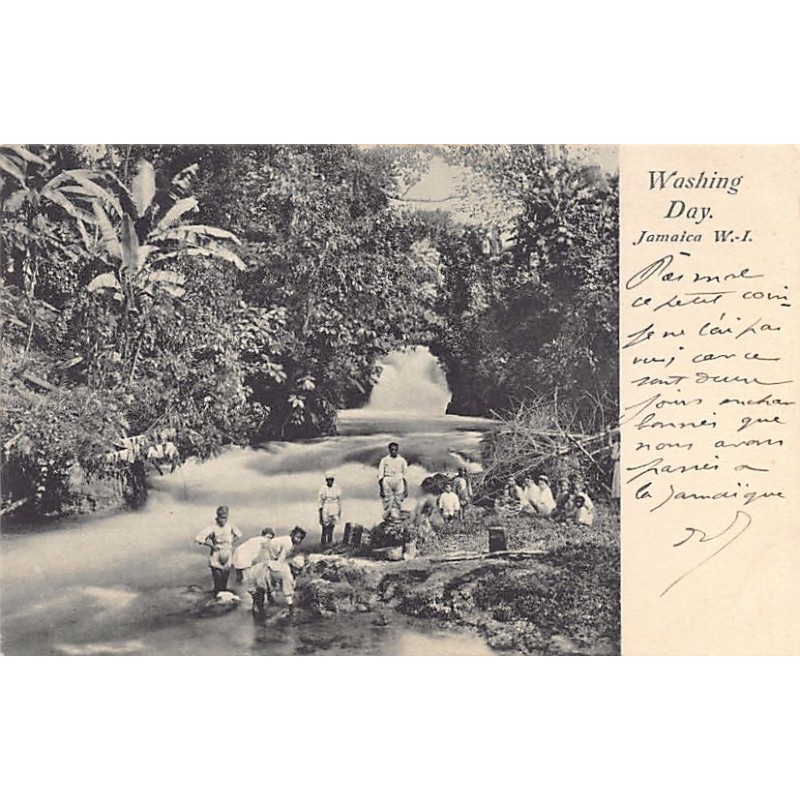 Washing
Day.
Jamaica W.-I.
Pas mal
ce petit coin
je ne l'ai pas
vu; car ce
sont deux
jours enchan
tonnés que
nous avons
passés a
la Jamaïque